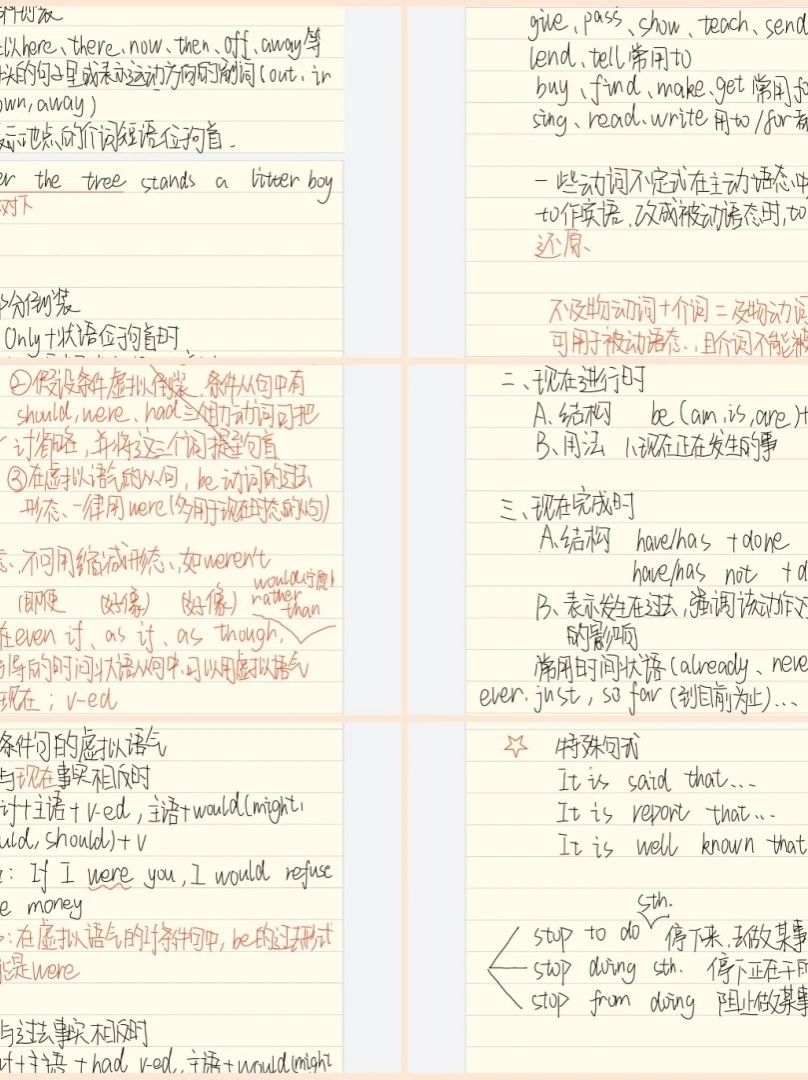 以here、there、now、then、off、away等
头的句子里或表示运动方向的副词(out、in
own, away)
表示地点的介词短语位于句首.
er the tree stands a litter boy
对下
部分倒装
Only+状语位于句首时
give、pass、show、teach、send
lend、tell 常用to
buy、find、make、get 常用fo
sing、read、write 用to/for
一些动词不定式在主动语态中
to作宾语,改成被动语态时,to
还原、
不及物动词+介词=及物动词
可用于被动语态、且介词不能被
②假设条件虚拟倒装,条件从句中有
should, were、had三个助动词可把
讨省略,并将这三个词提到句首
③在虚拟语气的从句,be动词的过去
形态、一律用were(多用于现在时态的从句)
态、不可用缩减形态、如weren't
(即使 (好像) (好像) would(宁愿)
rather
than
在even if、as if、as though,
引导的时间状语从句中,可以用虚拟语气
现在; v-ed
二、现在进行时
A、结构 be(am, is, are)+
B、用法 1、现在正在发生的事
三、现在完成时
A.结构 have/has +done
have/has not +d
B、表示发生在过去,强调该动作对
的影响
常用时间状语(already、neve
ever. just, so far (到目前为止)...
条件句的虚拟语气
与现在事实相反时
if+主语+v-ed,主语+would(might,
uld, should)+v
: If I were you, I would refuse
e money
:在虚拟语气的if条件句中,be的过去形式
能是were
与过去事实相反时
if+主语+had v-ed,主语+would(might
☆ 特殊句式
It is said that...
It is report that...
It is well known that
sth.
stop to do 停下来,去做某事
stop doing sth. 停下正在干的
stop from doing 阻止做某事